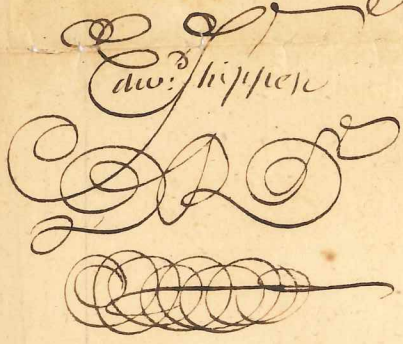 Edw.d Shippen